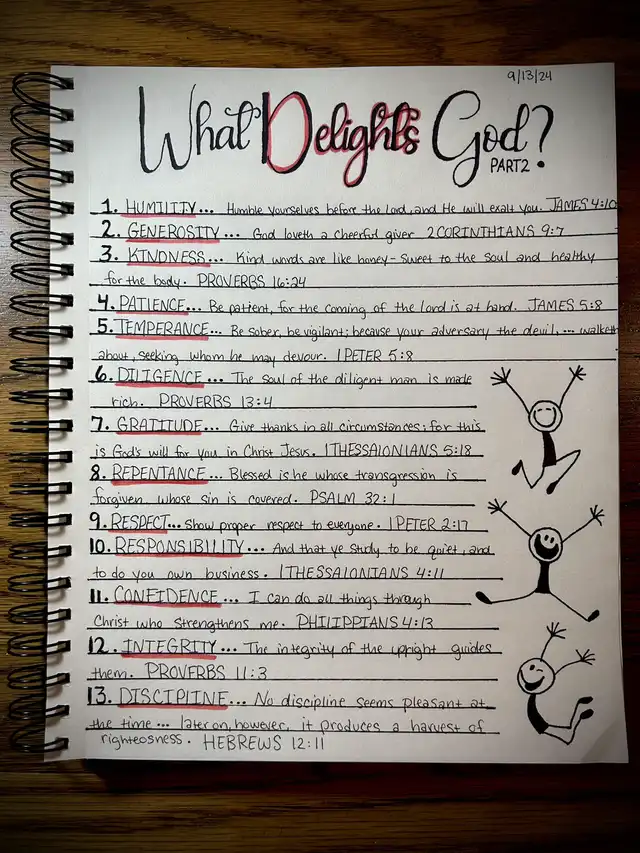 9/13/24
What Delights God?
PART 2
1. HUMILITY... Humble yourselves before the Lord, and He will exalt you. JAMES 4:10
2. GENEROSITY... God loveth a cheerful giver. 2 CORINTHIANS 9:7
3. KINDNESS... Kind words are like honey - sweet to the soul and healthy
for the body. PROVERBS 16:24
4. PATIENCE... Be patient, for the coming of the Lord is at hand. JAMES 5:8
5. TEMPERANCE... Be sober, be vigilant; because your adversary the devil, ... walketh
about, seeking whom he may devour. 1 PETER 5:8
6. DILIGENCE... The soul of the diligent man is made
rich. PROVERBS 13:4
7. GRATITUDE... Give thanks in all circumstances; for this
is God's will for you in Christ Jesus. 1 THESSALONIANS 5:18
8. REPENTANCE... Blessed is he whose transgression is
forgiven, whose sin is covered. PSALM 32:1
9. RESPECT... Show proper respect to everyone. 1 PETER 2:17
10. RESPONSIBILITY... And that ye study to be quiet, and
to do you own business. 1 THESSALONIANS 4:11
11. CONFIDENCE... I can do all things through
Christ who strengthens me. PHILIPPIANS 4:13
12. INTEGRITY... The integrity of the upright guides
them. PROVERBS 11:3
13. DISCIPLINE... No discipline seems pleasant at
the time ... later on, however, it produces a harvest of
righteosness. HEBREWS 12:11